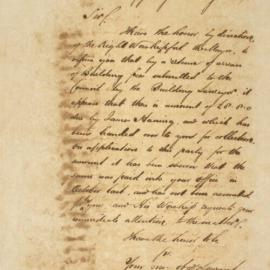 Sir,
I have the honor by direction
of the Right Worshipful the Mayor, to
inform you that by a return of arrears
of Building fees submitted to the
Council by the Building Surveyor it
appears that there is amount of
due by James and which has
been handed over to you for collection.
On application to this party for the
amount it has been shewn that the
same was paid into your Office in
October last, and has not been accounted
for, and His Worship requests your
immediate attention to the matter.
I have the honor to be
Sir
Your